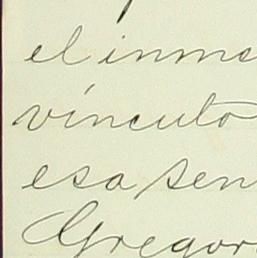 el inme
vínculo
esa sen
Gregor